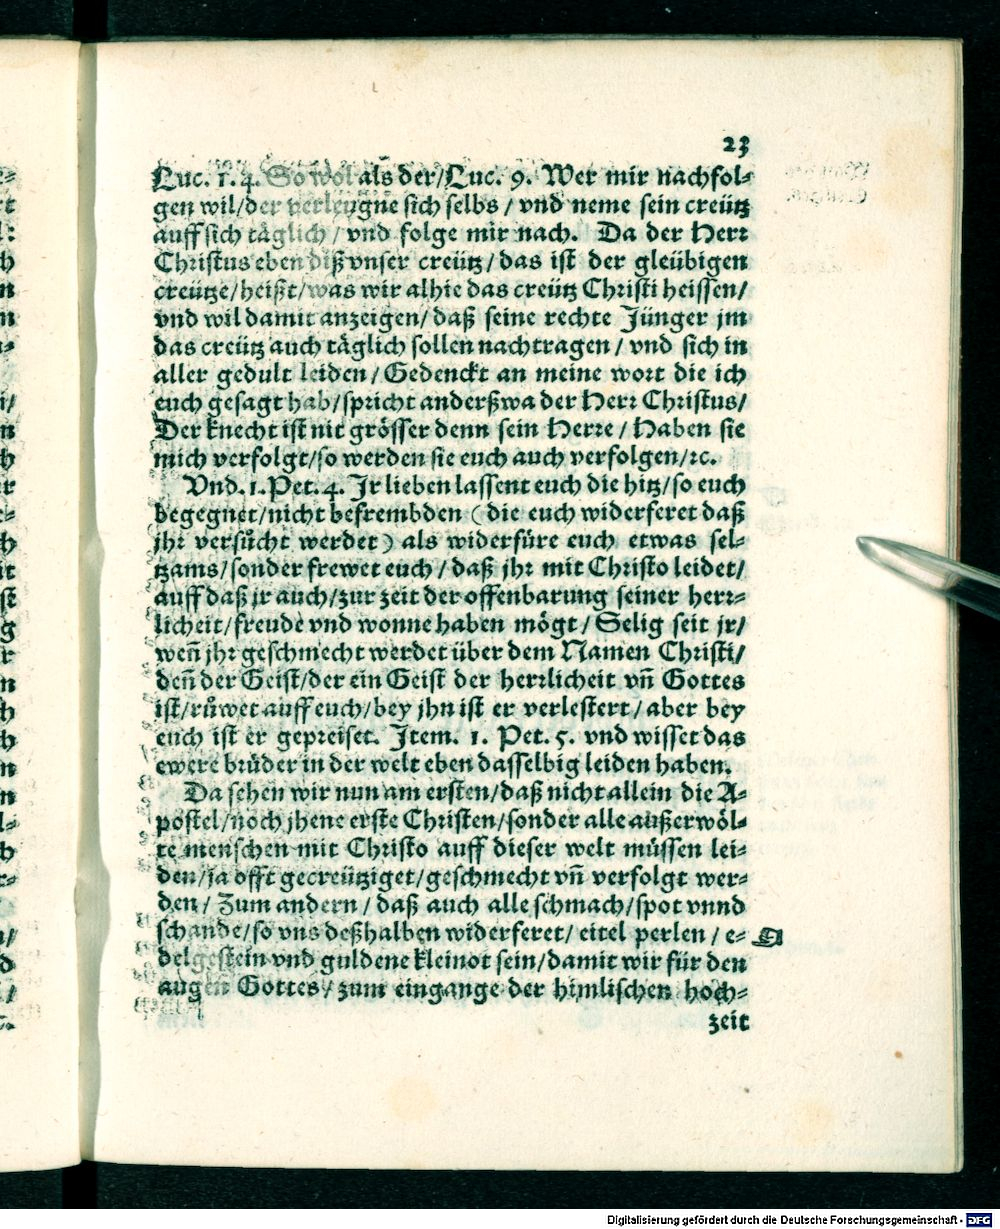 23
Luc. 1. 4. So wol als der/Luc. 9. Wer mir nachfol⸗
gen wil/der verleugne sich selbs / vnd neme sein creütz
auff sich täglich / vnd folge mir nach. Da der Herr
Christus eben diß vnser creütz/das ist der gleübigen
creütze/heißt/was wir alhie das creütz Christi heissen/
vnd wil damit anzeigen/daß seine rechte Jünger jm
das creütz auch täglich sollen nachtragen / vnd sich in
aller gedult leiden / Gedenckt an meine wort die ich
euch gesagt hab/spricht anderßwa der Herr Christus/
Der knecht ist nit grösser denn sein Herre / Haben sie
mich verfolgt/so werden sie euch auch verfolgen/ꝛc.
Vnd. 1. Pet. 4. Jr lieben lassent euch die hitz/so euch
begegnet/nicht befrembden (die euch widerferet daß
jhr versůcht werdet) als widerfüre euch etwas sel⸗
tzams/sonder frewet euch / daß jhr mit Christo leidet/
auff daß jr auch/zur zeit der offenbarung seiner herr⸗
licheit/freude vnd wonne haben mögt / Selig seit jr/
weñ jhr geschmecht werdet über dem Namen Christi/
deñ der Geist/der ein Geist der herrlicheit vñ Gottes
ist/růwet auff euch/bey jhn ist er verlestert / aber bey
euch ist er gepreiset. Item. 1. Pet. 5. vnd wisset das
ewere brüder in der welt eben dasselbig leiden haben.
Da sehen wir nun am ersten/daß nicht allein die A⸗
postel/noch jhene erste Christen/sonder alle außerwöl⸗
te menschen mit Christo auff dieser welt müssen lei⸗
den/ja offt gecreütziget/geschmecht vñ verfolgt wer⸗
den / Zum andern / daß auch alle schmach/spot vnnd
schande/so vns deßhalben widerferet/ eitel perlen / e⸗
delgestein vnd guldene kleinot sein/damit wir für den
augen Gottes / zum eingange der himlischen hoch⸗
zeit
Digitalisierung gefördert durch die Deutsche Forschungsgemeinschaft - DFG